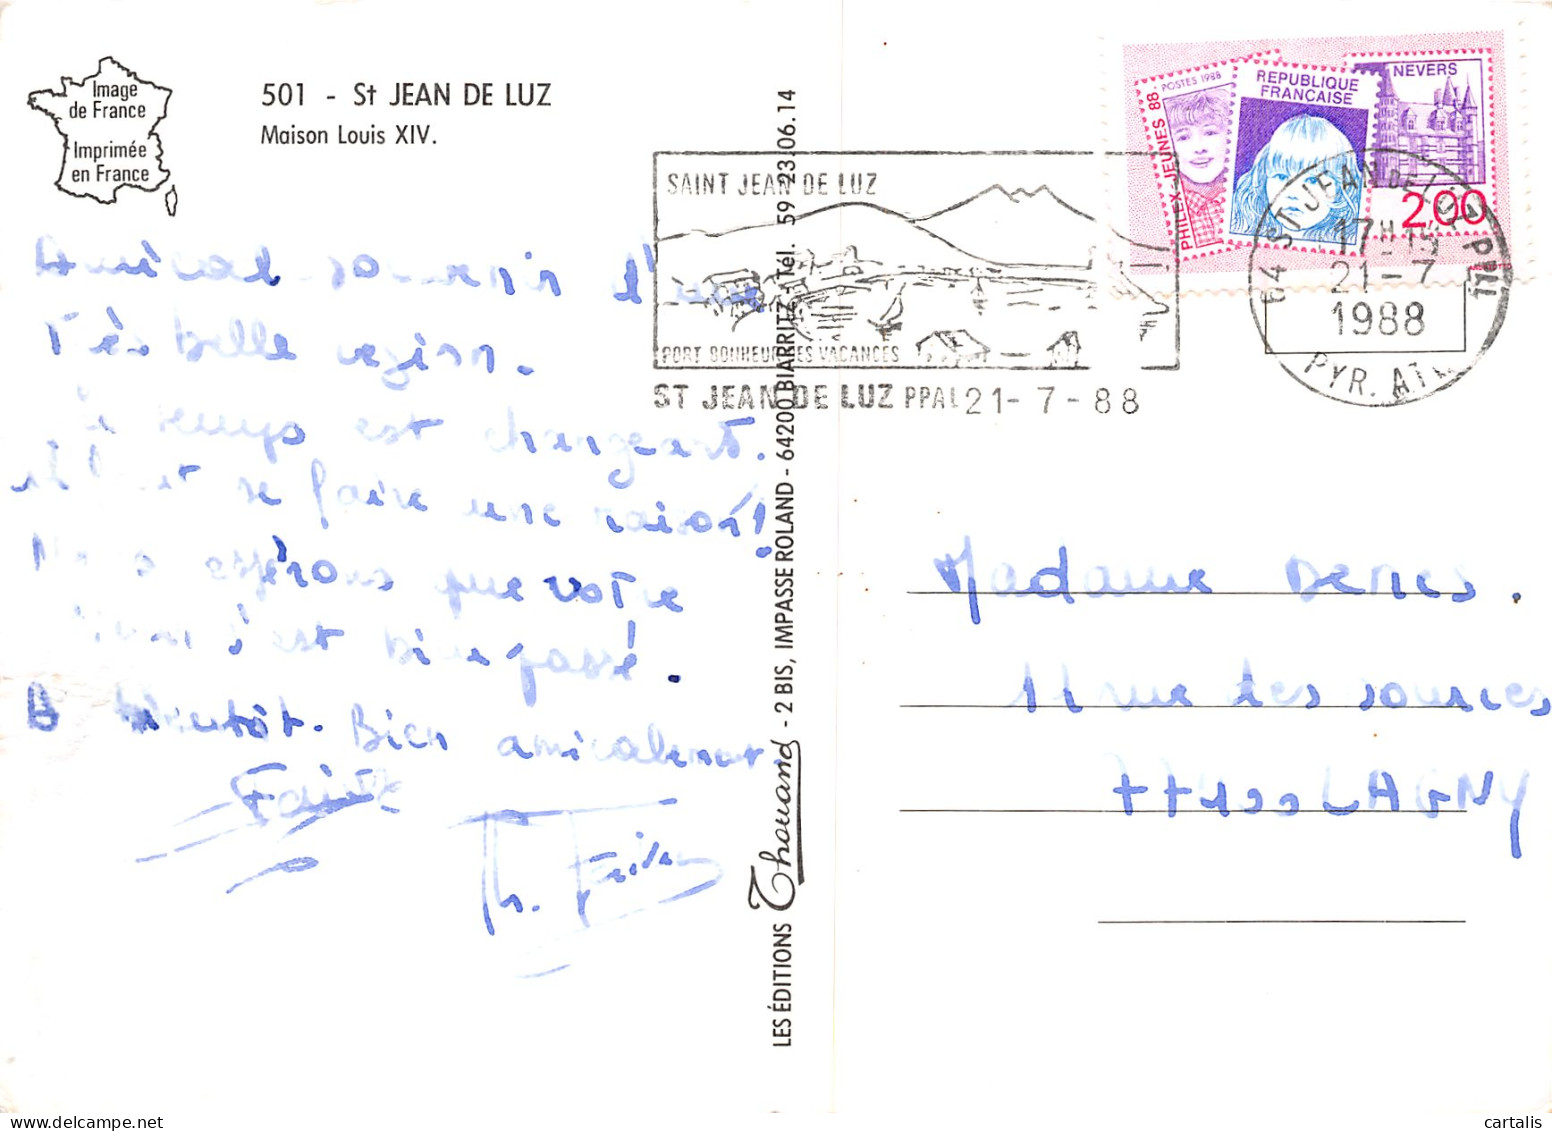 Image
de France
Imprimée
en France
501 - St JEAN DE LUZ
Maison Louis XIV.
Amical souvenir d'une
Très belle région.
Le temps est changeant.
il faut se faire une raison!
Nous espérons que votre
s'est bien passé.
A bientôt. Bien amicalement.
Th.
LES ÉDITIONS Thouand - 2 BIS, IMPASSE ROLAND - 64200 BIARRITZ - Tel. 59 23.06.14
SAINT JEAN DE LUZ
PORT BONHEUR DES VACANCES
ST JEAN DE LUZ PPAL 21-7-88
POSTES 1988
PHILEX-JEUNES 88
REPUBLIQUE
FRANÇAISE
NEVERS
2,00
64 ST JEAN DE LUZ PPAL
17H15
21-7
1988
PYR. ATL.
Madame Denis.
11 rue des sources
77400 LAGNY
cartalis